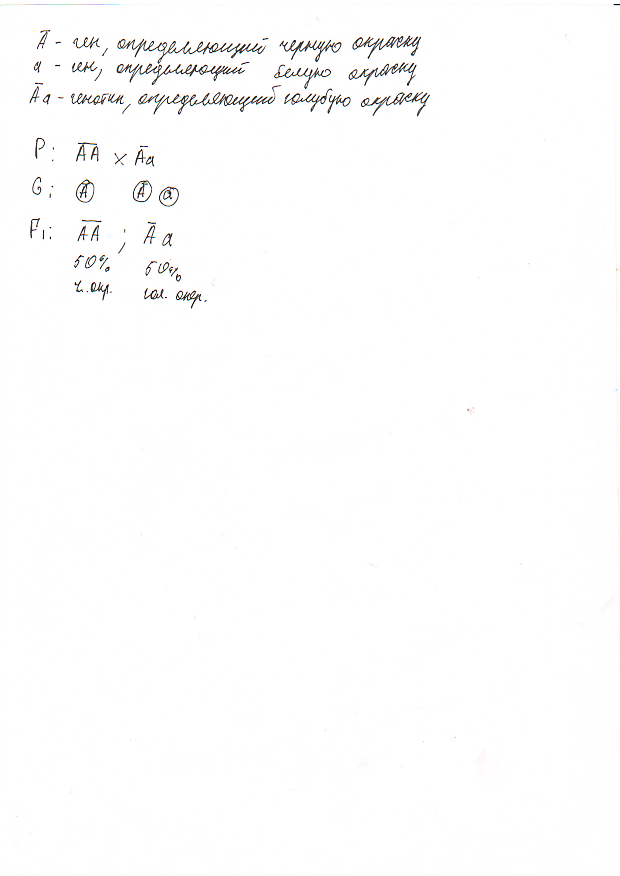 Ā - ген, определяющий черную окраску
а - ген, определяющий белую окраску
Āа - генотип, определяющий голубую окраску
P: ĀĀ × Āа
G: Ā Ā а
F₁: ĀĀ ; Ā а
50% 50%
ч. окр. гол. окр.